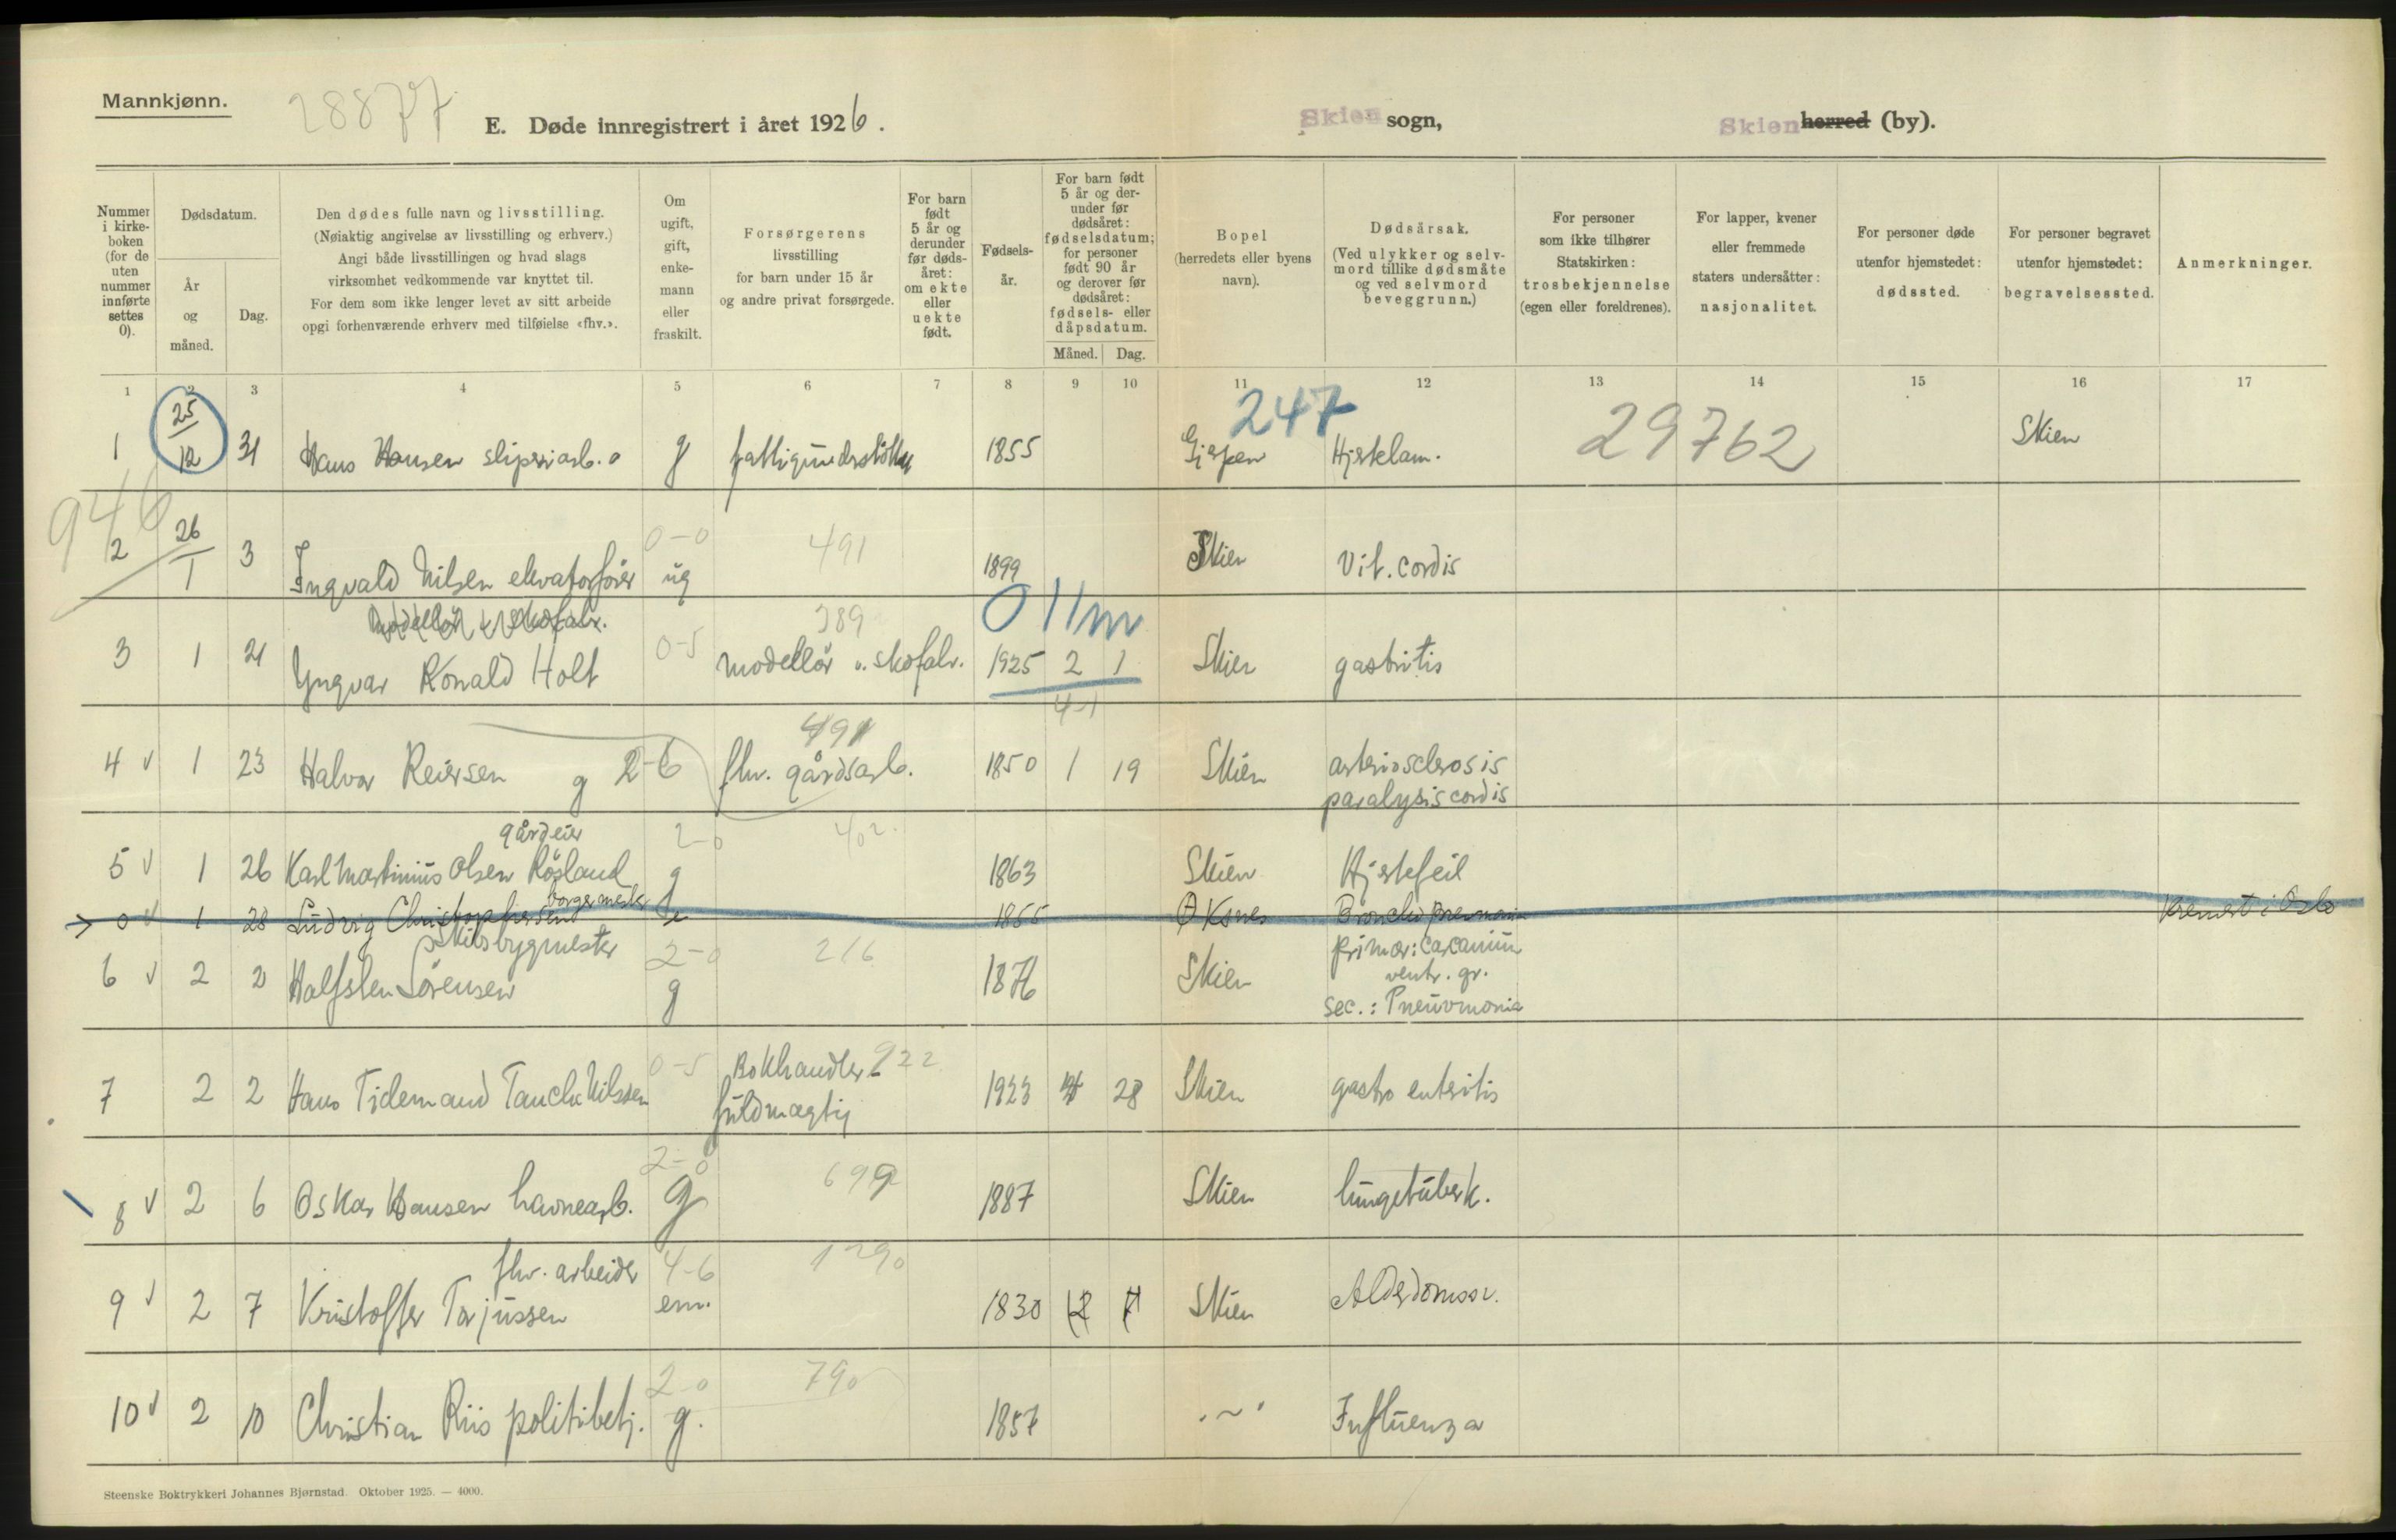 Mannkjønn.
28877
E. Døde innregistrert i året 1926.
Skien sogn,
Skien herred (by).
Nummer i kirkeboken (for de uten nummer innførte settes 0).
Dødsdatum.
År og måned.
Dag.
Den dødes fulle navn og livsstilling.
(Nøiaktig angivelse av livsstilling og erhverv.)
Angi både livsstillingen og hvad slags
virksomhet vedkommende var knyttet til.
For dem som ikke lenger levet av sitt arbeide
opgi forhenværende erhverv med tilføielse «fhv.».
Om ugift, gift, enkemann eller fraskilt.
Forsørgerens
livsstilling
for barn under 15 år
og andre privat forsørgede.
For barn født 5 år og derunder før dødsåret: om ekte eller uekte født.
Fødselsår.
For barn født 5 år og derunder før dødsåret: fødselsdatum; for personer født 90 år og derover før dødsåret: fødsels- eller dåpsdatum.
Måned. Dag.
Bopel
(herredets eller byens
navn).
Dødsårsak.
(Ved ulykker og selvmord tillike dødsmåte
og ved selvmord
beveggrunn.)
For personer
som ikke tilhører
Statskirken:
trosbekjennelse
(egen eller foreldrenes).
For lapper, kvener
eller fremmede
staters undersåtter:
nasjonalitet.
For personer døde
utenfor hjemstedet:
dødssted.
For personer begravet
utenfor hjemstedet:
begravelsessted.
Anmerkninger.
1 2 3 4 5 6 7 8 9 10 11 12 13 14 15 16 17
247
29762
1 25/12 31 Hans Hansen sliperiarb. g fattigunderstøttet 1855 Gjerpen Hjertelam. Skien
946
0-0 491
2 26/1 3 Ingvald Nilsen elevatorfører ug 1899 Skien Vit. cordis
modellør v. skofabr.
389 0 11m
3 1 21 Yngvar Ronald Holt 0-5 modellør v. skofabr. 1925 2 1 Skien gastritis
4-1
491
4 v 1 23 Halvor Reiersen g 2-6 fhv. gårdsarb. 1850 1 19 Skien arteriosclerosis
paralysis cordis
gårdeier 2-0 402.
5 v 1 26 Karl Martinius Olsen Røsland g 1863 Skien Hjertefeil
0 v 1 28 Ludvig Christophersen 1855 Bronchopneumonia Kremert i Oslo
skibsbygmester 2-0 216
6 v 2 2 Halfsten Sørensen g 1876 Skien primær: carcanium
ventr. gr.
sec.: Pneuvmonia
0-5 Bokhandler 922
7 2 2 Hans Tidemand Tanche Nilssen fuldmægtig 1923 28 Skien gastro enteritis
2-0 699
8 v 2 6 Oskar Hansen havnearb. g 1887 Skien lungetuberk.
fhv. arbeider 4-6 1290
9 v 2 7 Kristoffer Tarjussen em. 1830 12 7 Skien Alderdomssv.
2-0 790
10 v 2 10 Christian Riis politibetj. g. 1857 -"- Influenza
Steenske Boktrykkeri Johannes Bjørnstad. Oktober 1925. — 4000.